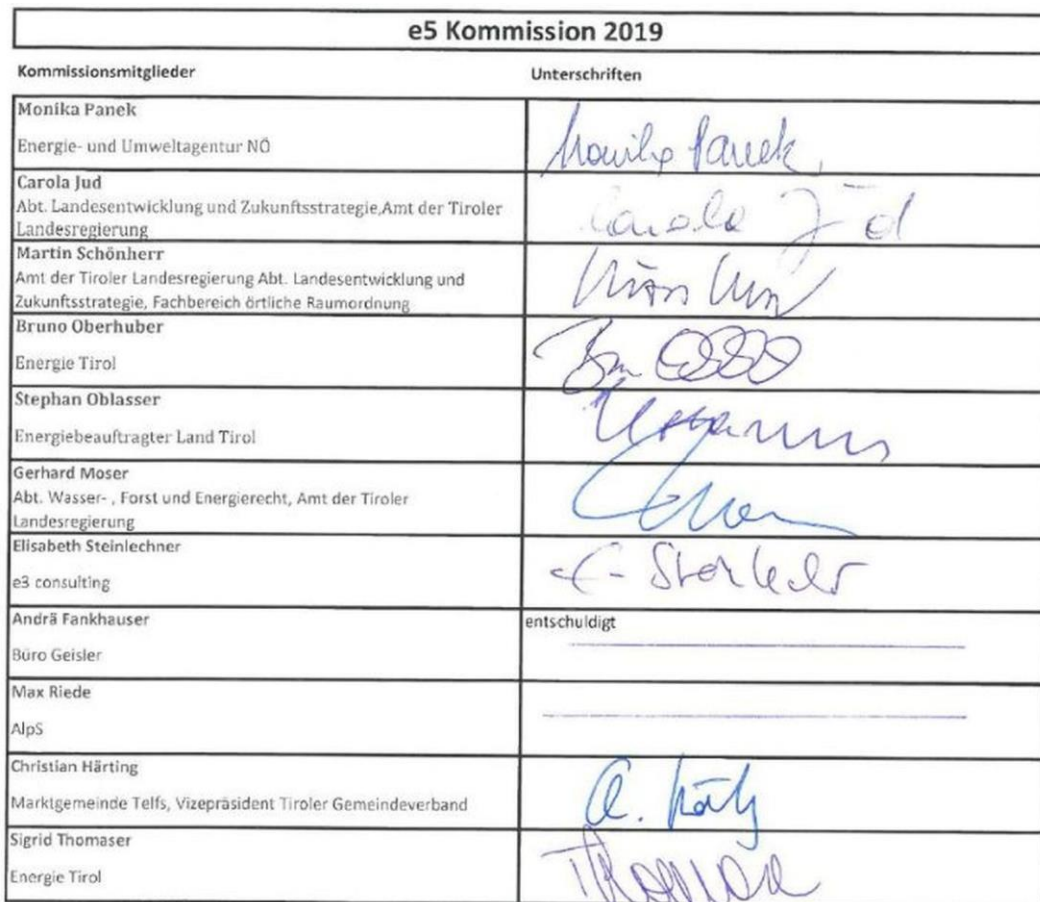 e5 Kommission 2019
Kommissionsmitglieder Unterschriften
Monika Panek
Energie- und Umweltagentur NÖ
Monika Panek
Carola Jud
Abt. Landesentwicklung und Zukunftsstrategie,Amt der Tiroler
Landesregierung
Carola Jud
Martin Schönherr
Amt der Tiroler Landesregierung Abt. Landesentwicklung und
Zukunftsstrategie, Fachbereich örtliche Raumordnung
Bruno Oberhuber
Energie Tirol
Stephan Oblasser
Energiebeauftragter Land Tirol
Gerhard Moser
Abt. Wasser- , Forst und Energierecht, Amt der Tiroler
Landesregierung
Elisabeth Steinlechner
e3 consulting
Andrä Fankhauser
entschuldigt
Büro Geisler
Max Riede
AlpS
Christian Härting
Marktgemeinde Telfs, Vizepräsident Tiroler Gemeindeverband
Sigrid Thomaser
Energie Tirol